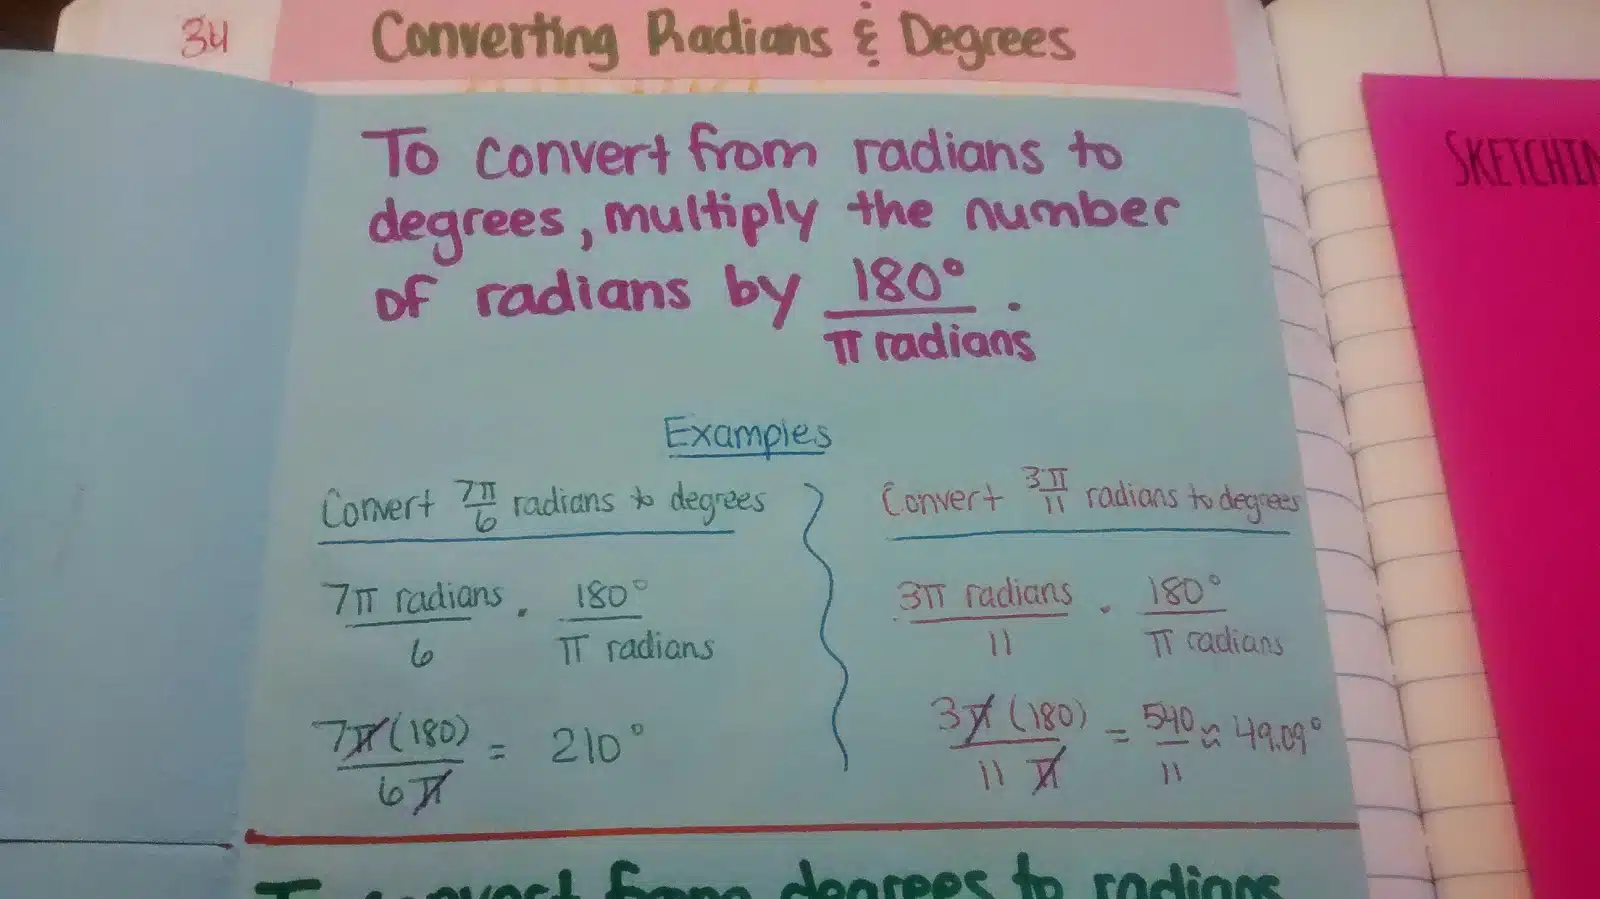 34
Converting Radians & Degrees
To convert from radians to
degrees, multiply the number
of radians by 180°/π radians.
SKETCHIN
Examples
Convert 7π/6 radians to degrees
7π radians/6 · 180°/π radians
7π(180)/6π = 210°
Convert 3π/11 radians to degrees
3π radians/11 · 180°/π radians
3π(180)/11π = 540/11 ≈ 49.09°
To convert from degrees to radians